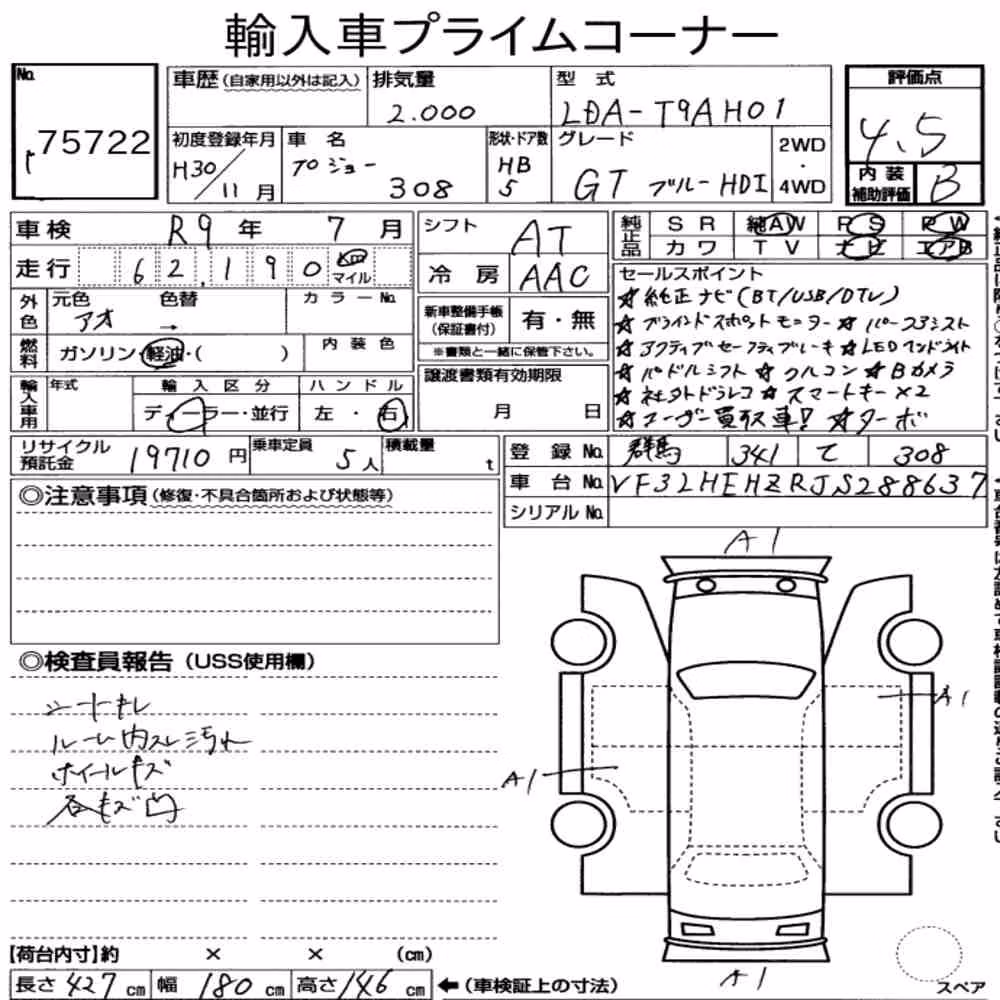 輸入車プライムコーナー
No. 75722
車歴(自家用以外は記入)
排気量 2.000
型式 LDA-T9AH01
評価点 4.5
内装補助評価 B
初度登録年月 H30/11月
車名 プジョー 308
形状・ドア数 HB 5
グレード GT ブルーHDI
2WD・4WD
車検 R9年 7月
走行 62,190 km マイル
シフト AT
冷房 AAC
純正品 SR 純AW PS PW
カワ TV ナビ エアB
外色 元色 アオ 色替 → カラーNo.
燃料 ガソリン・軽油・( ) 内装色
新車整備手帳(保証書付) 有・無
※書類と一緒に保管下さい。
輸入車用 年式 輸入区分 ディーラー・並行 ハンドル 左・右
譲渡書類有効期限 月 日
セールスポイント
☆純正ナビ(BT/USB/DTV)
☆ブラインドスポットモニター☆パークアシスト
☆アクティブセーフティブレーキ☆LEDヘッドライト
☆パドルシフト☆クルコン☆Bカメラ
☆社外ドラレコ☆スマートキー×2
☆ユーザー買取車!☆ターボ
リサイクル預託金 19710円 乗車定員 5人 積載量 t
登録No. 群馬 341 て 308
車台No. VF3LHEHZRJS288637
シリアルNo.
◎注意事項(修復・不具合箇所および状態等)
◎検査員報告(USS使用欄)
シートキレ
ルーム内スレ汚れ
ホイールキズ
各キズ凹
A1
A1
A1
A1
【荷台内寸】約 × × (cm)
長さ 427 cm 幅 180 cm 高さ 146 cm ←(車検証上の寸法)
スペア